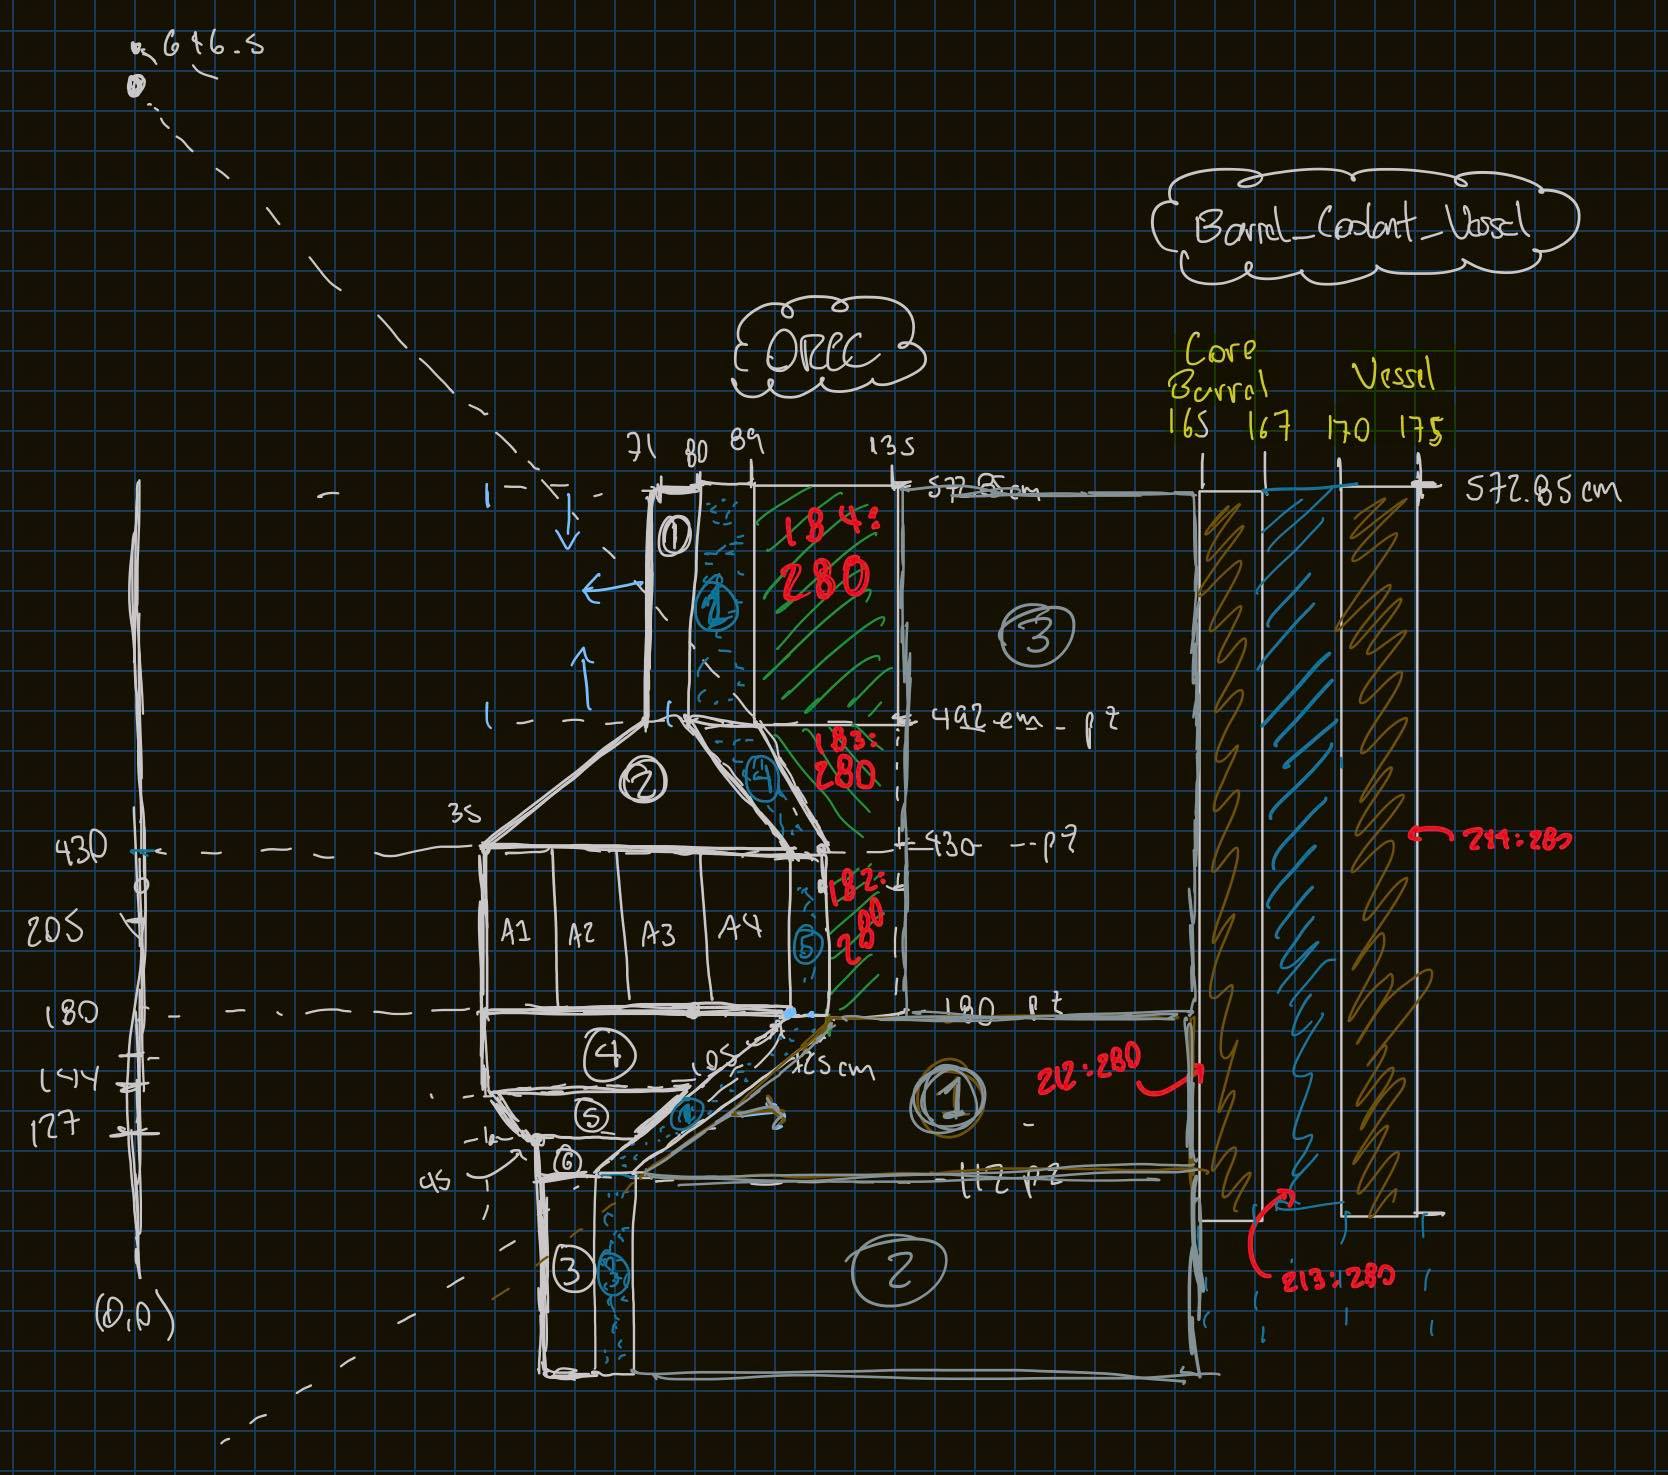 646.5
Barrel_Coolant_Vessel
ORCC
Core Barrel
Vessel
165 167 170 175
71 80 89 135
572.85 cm
572.85 cm
1
2
184:
280
3
492 cm - pz
2
4
183:
280
35
430
430 - pz
214:280
205
A1 A2 A3 A4
5
182:
280
180
180 pz
4
105
125 cm
144
5
1
212:280
127
6
45
112 pz
3
3
2
213:280
(0,0)